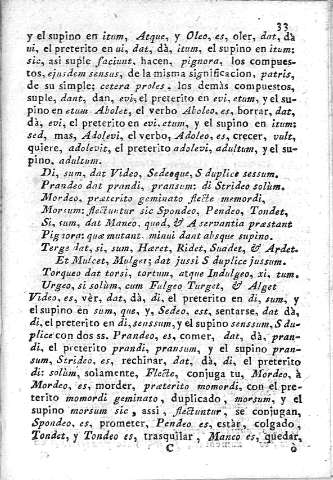 33
y el supino en itum, Atque, y Oleo, es, oler, dat, dà
ui, el preterito en ui, dat, dà, itum, el supino en itum;
sic, asi suple faciunt, hacen, pignora, los compues-
tos, ejusdem sensus, de la misma significacion, patris,
de su simple; cetera proles, los demàs compuestos,
suple, dant, dan, evi, el preterito en evi, etum, y el su-
pino en etum Abolet, el verbo Aboleo, es, borrar, dat,
dà, evi, el preterito en evi, etum, y el supino en itum;
sed, mas, Adolevi, el verbo, Adoleo, es, crecer, vult,
quiere, adolevit, el preterito adolevi, adultum, y el su-
pino, adultum.
Di, sum, dat Video, Sedeoque, S duplice sessum.
Prandeo dat prandi, pransum: di Strideo solùm.
Mordeo, præterito geminato flecte memordi,
Morsum: flectuntur sic Spondeo, Pendeo, Tondet,
Si, sum, dat Maneo, quod, & A servantia præstant
Pignora: quæ mutant, minui dant absque supino.
Terge dat, si, sum, Hæret, Ridet, Suadet, & Ardet.
Et Mulcet, Mulget; dat jussi S duplice jussum.
Torqueo dat torsi, tortum, atque Indulgeo, xi, tum.
Urgeo, si solùm, cum Fulgeo Turget, & Alget
Video, es, vèr, dat, dà, di, el preterito en di, sum, y
el supino en sum, que, y, Sedeo, est, sentarse, dat dà
di, el preterito en di, senssum, y el supino senssum, S du-
plice con dos ss. Prandeo, es, comer, dat, dà, pran-
di, el preterito prandi, pransum, y el supino pran-
sum, Strideo, es, rechinar, dat, dà, di, el preterito
di: solùm, solamente, Flecte, conjuga tu, Mordeo, à
Mordeo, es, morder, præterito momordi, con el pre-
terito momordi geminato, duplicado, morsum, y el
supino morsum sic, assi, flectuntur, se conjugan,
Spondeo, es, prometer, Pendeo es, estàr, colgado,
Tondet, y Tondeo es, trasquilar, Maneo es, quedar,
C o